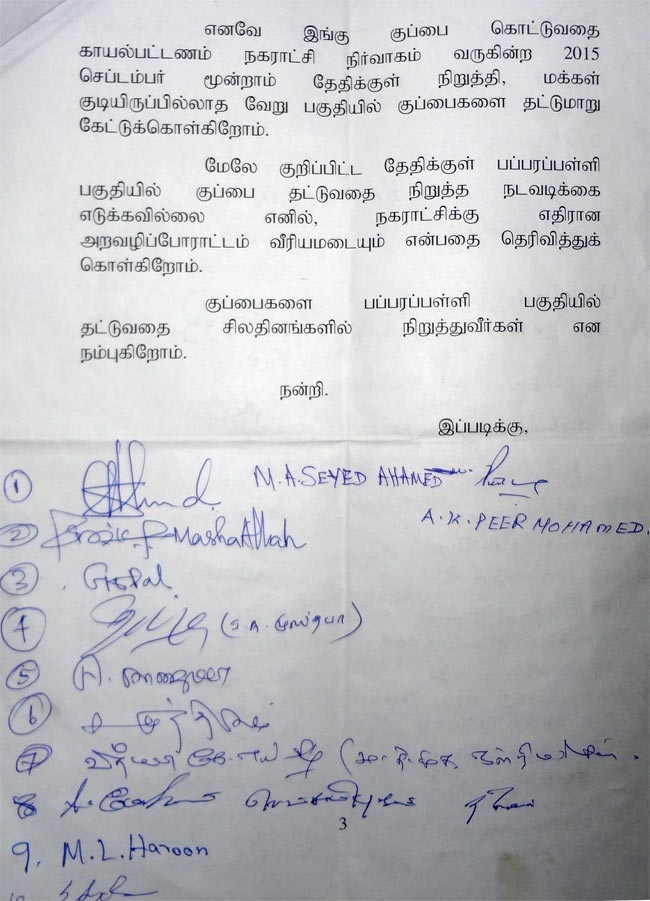 எனவே இங்கு குப்பை கொட்டுவதை
காயல்பட்டணம் நகராட்சி நிர்வாகம் வருகின்ற 2015
செப்டம்பர் மூன்றாம் தேதிக்குள் நிறுத்தி, மக்கள்
குடியிருப்பில்லாத வேறு பகுதியில் குப்பைகளை தட்டுமாறு
கேட்டுக்கொள்கிறோம்.
மேலே குறிப்பிட்ட தேதிக்குள் பப்பரப்பள்ளி
பகுதியில் குப்பை தட்டுவதை நிறுத்த நடவடிக்கை
எடுக்கவில்லை எனில், நகராட்சிக்கு எதிரான
அறவழிப்போராட்டம் வீரியமடையும் என்பதை தெரிவித்துக்
கொள்கிறோம்.
குப்பைகளை பப்பரப்பள்ளி பகுதியில்
தட்டுவதை சிலதினங்களில் நிறுத்துவீர்கள் என
நம்புகிறோம்.
நன்றி.
இப்படிக்கு,
1 M.A.SEYED AHAMED
A.K.PEER MOHAMED.
2 MashaAllah
3 . Gopal
4 (S.A. முஸ்தபா)
5
6
7
8
3
9. M.L.Haroon
10